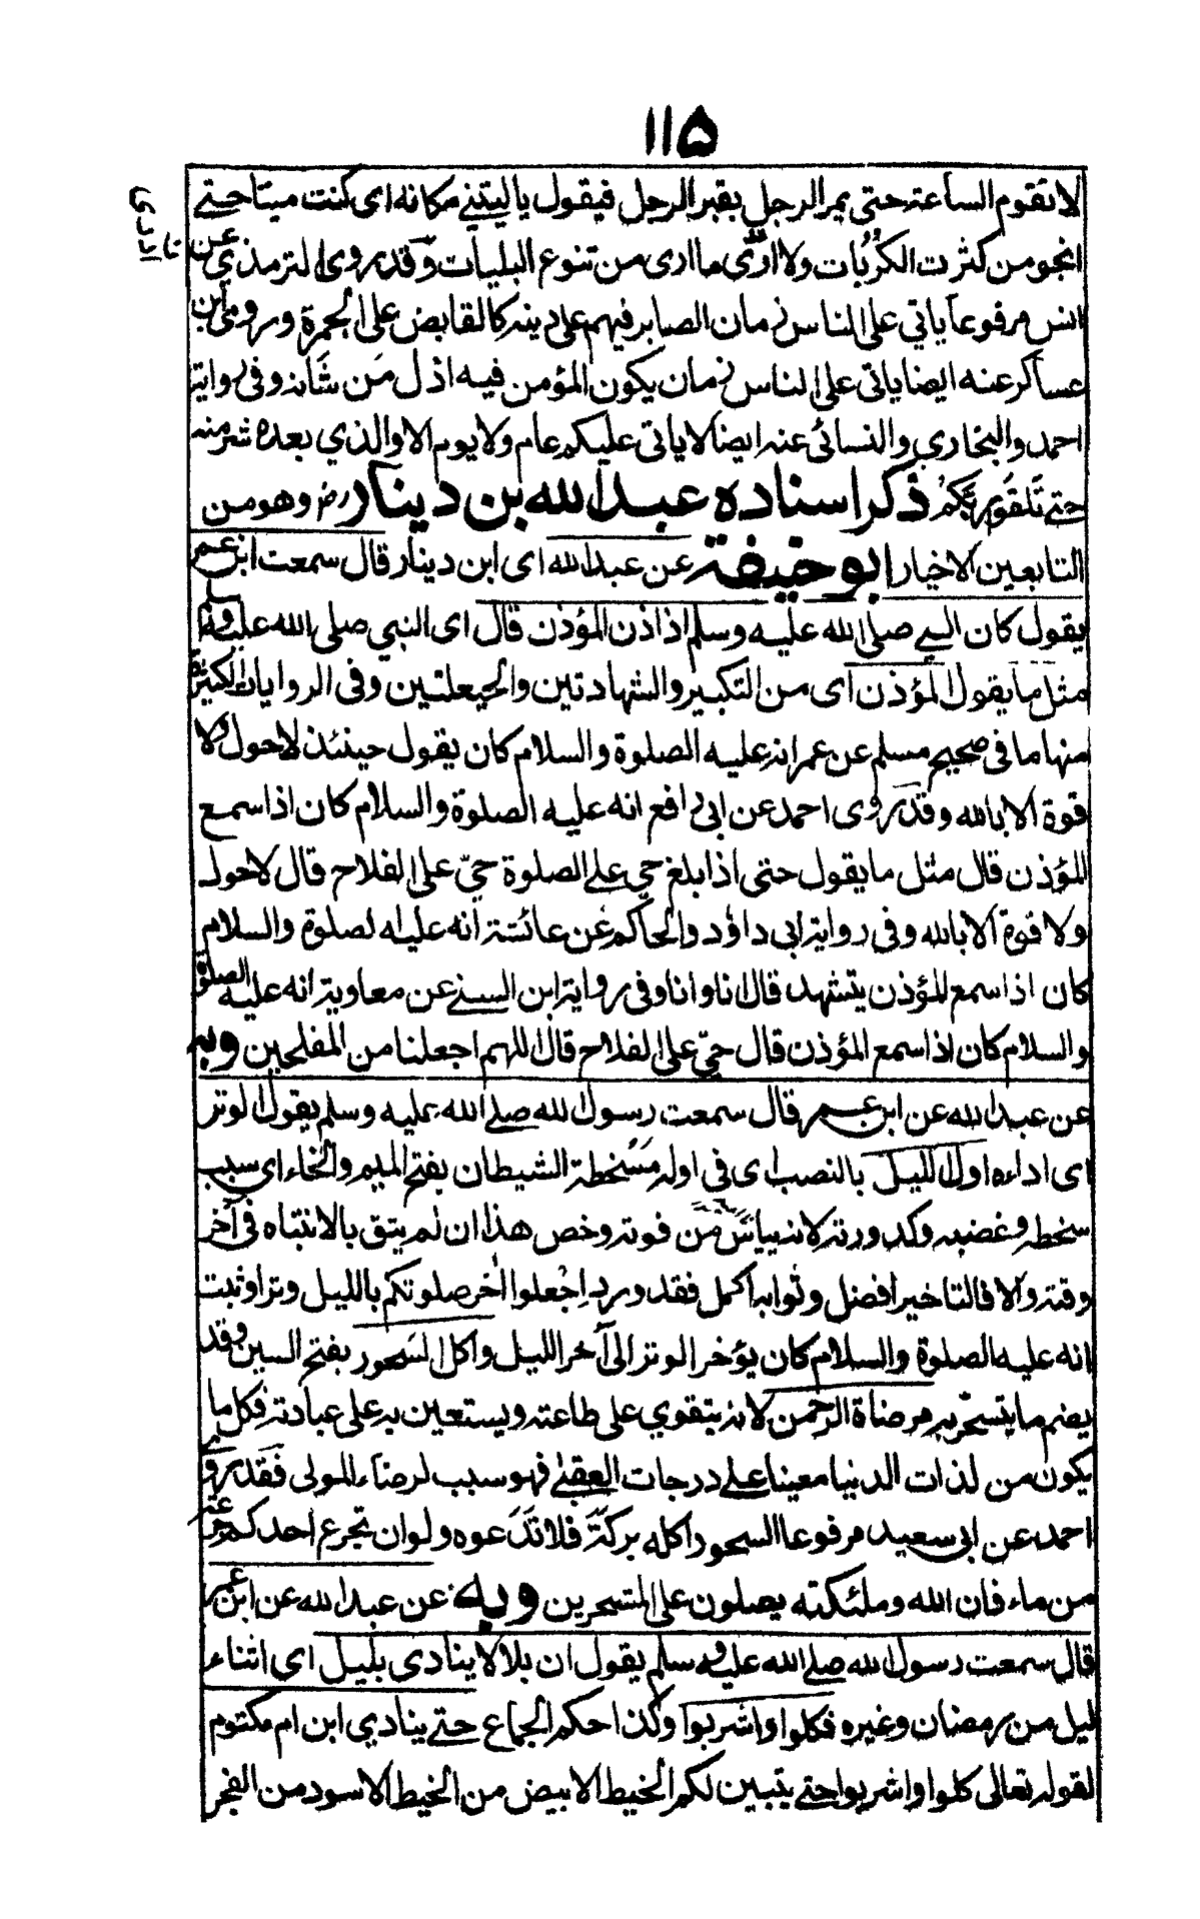 ١١٥
لا تقوم الساعة حتى يمر الرجل بقبر الرجل فيقول يا ليتني مكانه اى كنت ميتا حتے
انجو من كثرت الكربات ولا ارٰى ما ارى من تنوع البليات وقد روى الترمذي عن
انس مرفوعا ياتي على الناس زمان الصابر فيهم على دينه كالقابض على الجمرة وروى ابن
عساكر عنه ايضا ياتى على الناس زمان يكون المؤمن فيه اذل من شاته وفى رواية
احمد والبخاري والنسائى عنه ايضا لا ياتى عليكم عام ولا يوم الا والذي بعده شر منه
حتے تلقوا ربكم ذكر اسناده عبد الله بن دينار رض وهو من
التابعين الاخيار ابو حنيفة عن عبد الله اى ابن دينار قال سمعت ابن عمر
يقول كان النبي صلى الله عليه وسلم اذا اذن المؤذن قال اى النبي صلى الله عليه وسلم
مثل ما يقول المؤذن اى من التكبير والشهادتين والحيعلتين وفى الروايات الكثيرة
منها ما فى صحيح مسلم عن عمر انه عليه الصلوة والسلام كان يقول حينئذ لا حول ولا
قوة الا بالله وقد روى احمد عن ابى رافع انه عليه الصلوة والسلام كان اذا سمع
المؤذن قال مثل ما يقول حتى اذا بلغ حي علے الصلوة حيّ على الفلاح قال لا حول
ولا قوة الا بالله وفى رواية ابى داؤد والحاكم عن عائشة انه عليه الصلوة والسلام
كان اذا سمع المؤذن يتشهد قال انا وانا وفى رواية ابن السنے عن معاوية انه عليه الصلوة
والسلام كان اذا سمع المؤذن قال حيّ على الفلاح قال اللهم اجعلنا من المفلحين وبه
عن عبد الله عن ابن عمر قال سمعت رسول الله صلے الله عليه وسلم يقول الوتر
اى اداءه اول الليل بالنصب اى فى اوله مسخطة الشيطان بفتح الميم والخاء اى سبب
سخطه وغضبه وكدورته لانه يياس من فوته وخص هذا ان لم يثق بالانتباه فى آخر
وقته والا فالتاخير افضل وثوابه اكمل فقد ورد اجعلوا آخر صلوتكم بالليل وترا وثبت
انه عليه الصلوة والسلام كان يؤخر الوتر الى آخر الليل واكل السحور بفتح السين وقد
يضم ما يتسحّر به مرضاة الرحمن لانه يتقوي على طاعته ويستعين به على عبادته فكل ما
يكون من لذات الدنيا معينا علے درجات العقبٰے فهو سبب لرضاء المولى فقد روى
احمد عن ابى سعيد مرفوعا السحور اكله بركة فلا تدعوه ولو ان تجرع احدكم جرعة
من ماء فان الله وملئكته يصلون على المتسحرين وبه عن عبد الله عن ابن عمر
قال سمعت رسول الله صلے الله عليه وسلم يقول ان بلالا ينادى بليل اى اثناء
ليل من رمضان وغيره فكلوا واشربوا وكذا حكم الجماع حتے ينادي ابن ام مكتوم
لقوله تعالى كلوا واشربوا حتے يتبين لكم الخيط الابيض من الخيط الاسود من الفجر